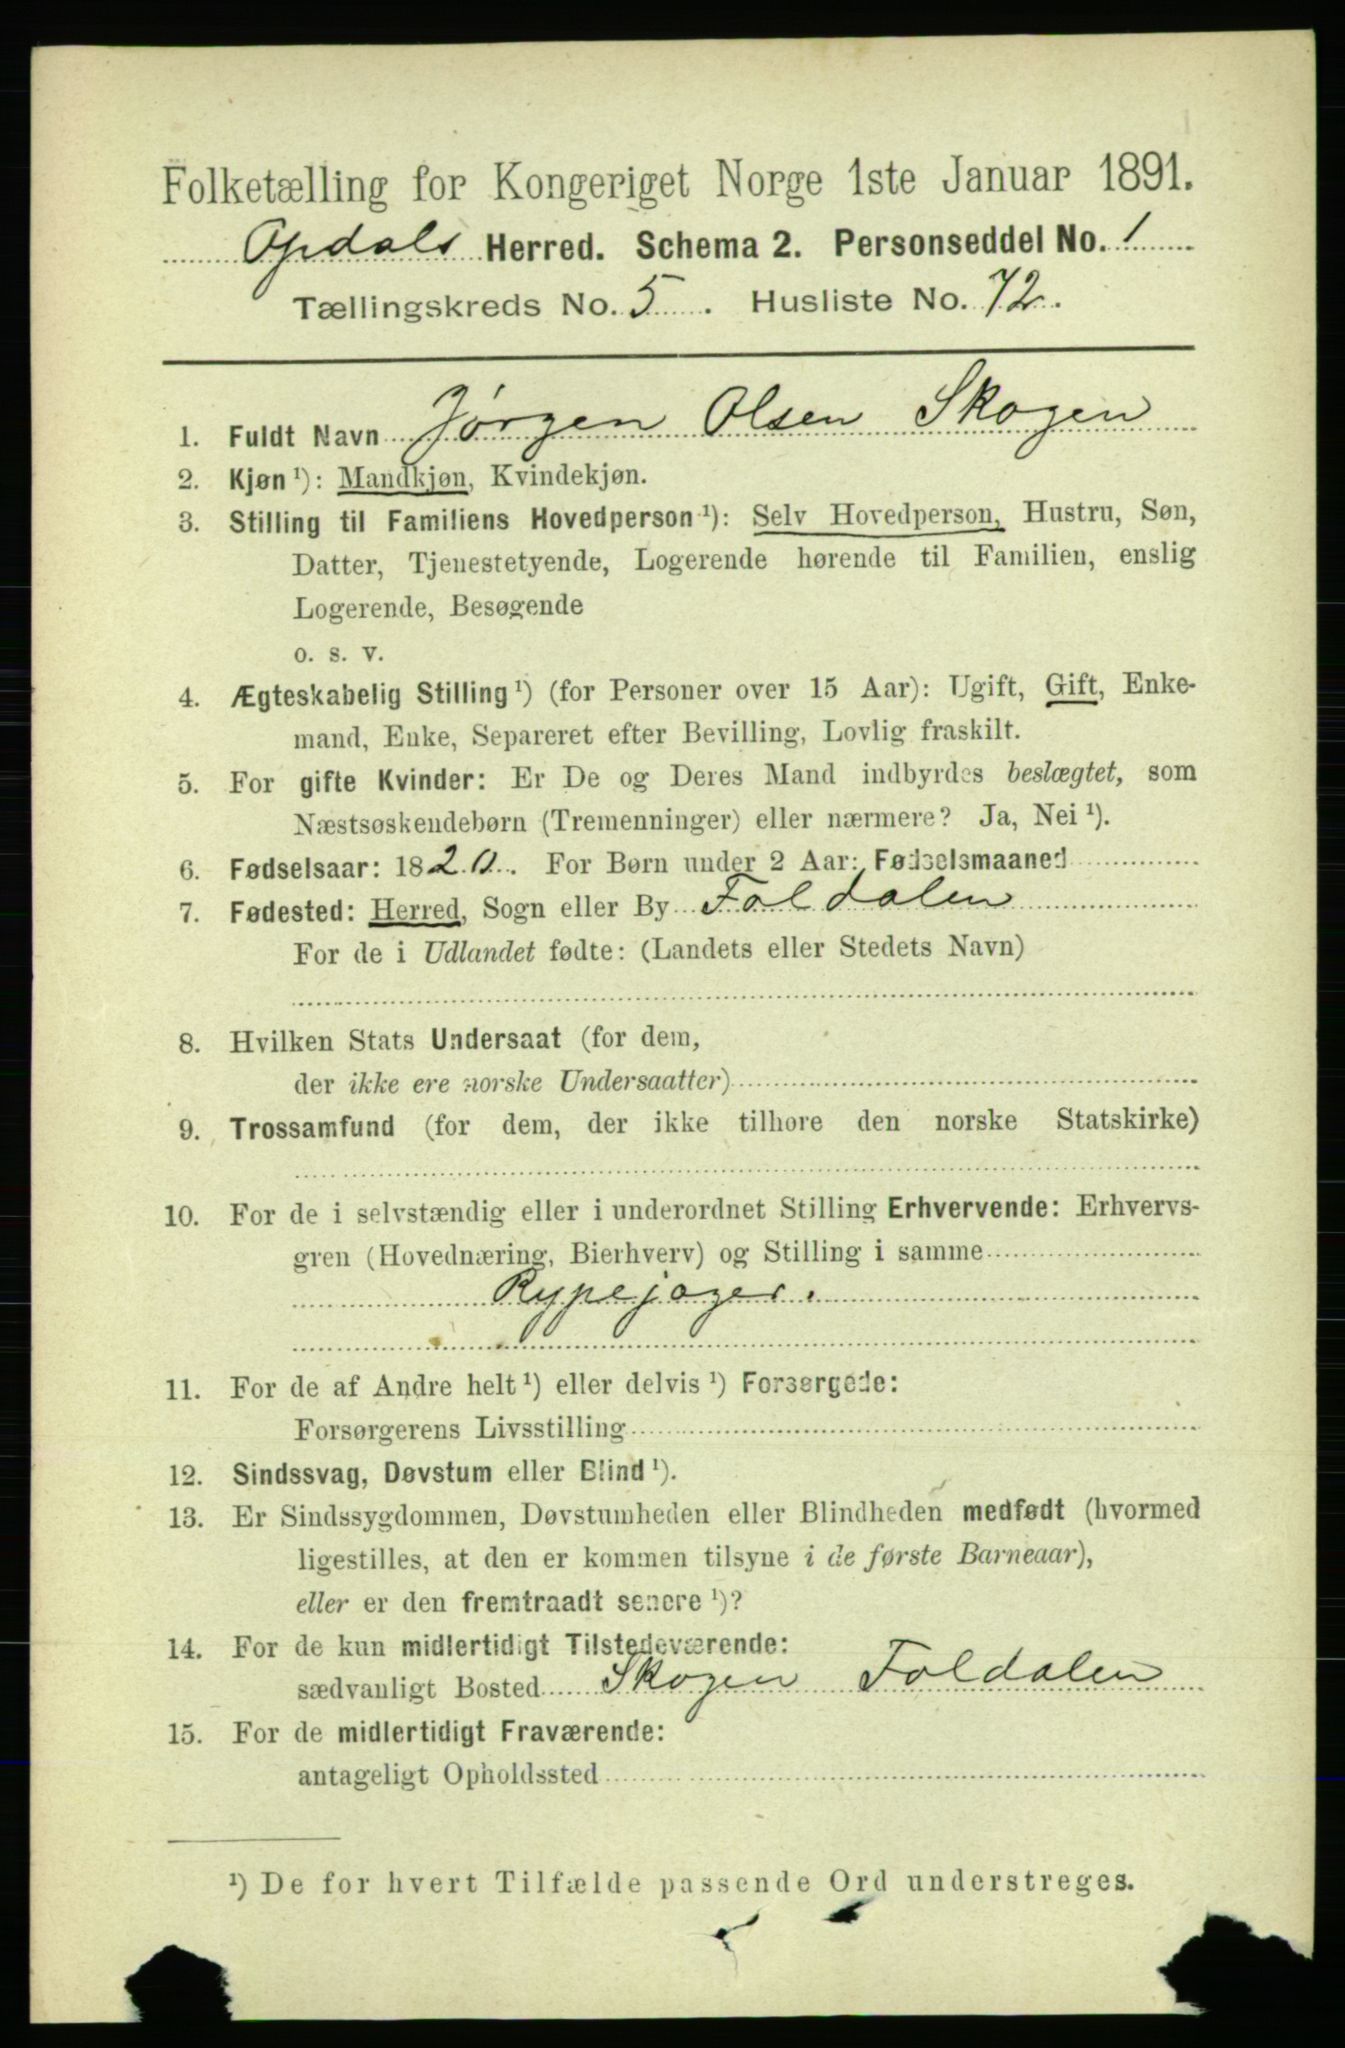 Folketælling for Kongeriget Norge 1ste Januar 1891.
Opdals Herred. Schema 2. Personseddel No. 1
Tællingskreds No. 5. Husliste No. 72.
1. Fuldt Navn Jørgen Olsen Skogen
2. Kjøn ¹): Mandkjøn, Kvindekjøn.
3. Stilling til Familiens Hovedperson ¹): Selv Hovedperson, Hustru, Søn,
Datter, Tjenestetyende, Logerende hørende til Familien, enslig
Logerende, Besøgende
o. s. v.
4. Ægteskabelig Stilling ¹) (for Personer over 15 Aar): Ugift, Gift, Enke-
mand, Enke, Separeret efter Bevilling, Lovlig fraskilt.
5. For gifte Kvinder: Er De og Deres Mand indbyrdes beslægtet, som
Næstsøskendebørn (Tremenninger) eller nærmere? Ja, Nei ¹).
6. Fødselsaar: 1820. For Børn under 2 Aar: Fødselsmaaned
7. Fødested: Herred, Sogn eller By Foldalen
For de i Udlandet fødte: (Landets eller Stedets Navn)
8. Hvilken Stats Undersaat (for dem,
der ikke ere norske Undersaatter)
9. Trossamfund (for dem, der ikke tilhøre den norske Statskirke)
10. For de i selvstændig eller i underordnet Stilling Erhvervende: Erhvervs-
gren (Hovednæring, Bierhverv) og Stilling i samme
Rypejæger.
11. For de af Andre helt ¹) eller delvis ¹) Forsørgede:
Forsørgerens Livsstilling
12. Sindssvag, Døvstum eller Blind ¹).
13. Er Sindssygdommen, Døvstumheden eller Blindheden medfødt (hvormed
ligestilles, at den er kommen tilsyne i de første Barneaar),
eller er den fremtraadt senere ¹)?
14. For de kun midlertidigt Tilstedeværende:
sædvanligt Bosted Skogen Foldalen
15. For de midlertidigt Fraværende:
antageligt Opholdssted
¹) De for hvert Tilfælde passende Ord understreges.